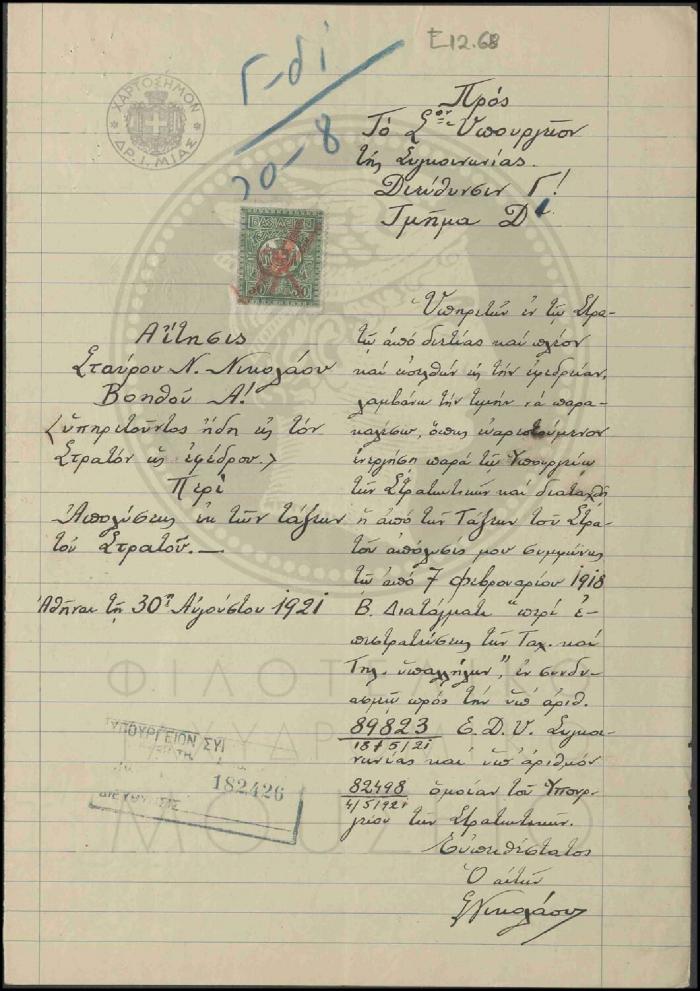 Ε12.68
Γ-δί
20-8
ΧΑΡΤΟΣΗΜΟΝ
ΔΡ. 1. ΜΙΑΣ
Πρός
Τό Σον Ὑπουργεῖον
τῆς Συγκοινωνίας.
Διεύθυνσιν Γ!
Τμῆμα Δ
Αἴτησις
Σταύρου Ν. Νικολάου
Βοηθοῦ Α!
(ὑπηρετοῦντος ἤδη εἰς τόν
Στρατόν ὡς ἐφέδρου.)
Περί
Ἀπολύσεως ἐκ τῶν τάξεων
τοῦ Στρατοῦ.—
Ἀθῆναι τῇ 30ῃ Αὐγούστου 1921
Ὑπηρετῶν ἐν τῷ Στρα-
τῷ ἀπό διετίας καί πλέον
καί εἰς τήν ἐφεδρείαν,
λαμβάνω τήν τιμήν νά παρα-
καλέσω, ὅπως εὐαρεστούμενον
ἐνεργήσῃ παρά τῷ Ὑπουργείῳ
τῶν Στρατιωτικῶν καί διαταχθῇ
ἡ ἀπό τῶν Τάξεων τοῦ Στρα-
τοῦ ἀπόλυσίς μου συμφώνως
τῷ ἀπό 7 Φεβρουαρίου 1918
Β. Διατάγματι "περί ἐ-
πιστρατεύσεως τῶν Ταχ. καί
Τηλ. ὑπαλλήλων", ἐν συνδυ-
ασμῷ πρός τήν ὑπ' ἀριθ.
89823 Ε.Δ.Υ. Συγκοι-
18/5/21
νωνίας καί ὑπ' ἀριθμόν
82498 ὁμοίαν τοῦ Ὑπουρ-
4/5/1921
γείου τῶν Στρατιωτικῶν.
Εὐπειθέστατος
Ὁ αἰτῶν
ΣΝικολάου
ΥΠΟΥΡΓΕΙΟΝ ΣΥΓ
182426
ΔΙΕΥΘΥΝΣΙΣ
ΦΙΛΟΤΕΛΙΚΟ
ΤΑΧΥΔΡΟΜΙΚΟ
ΜΟΥΣΕΙΟ